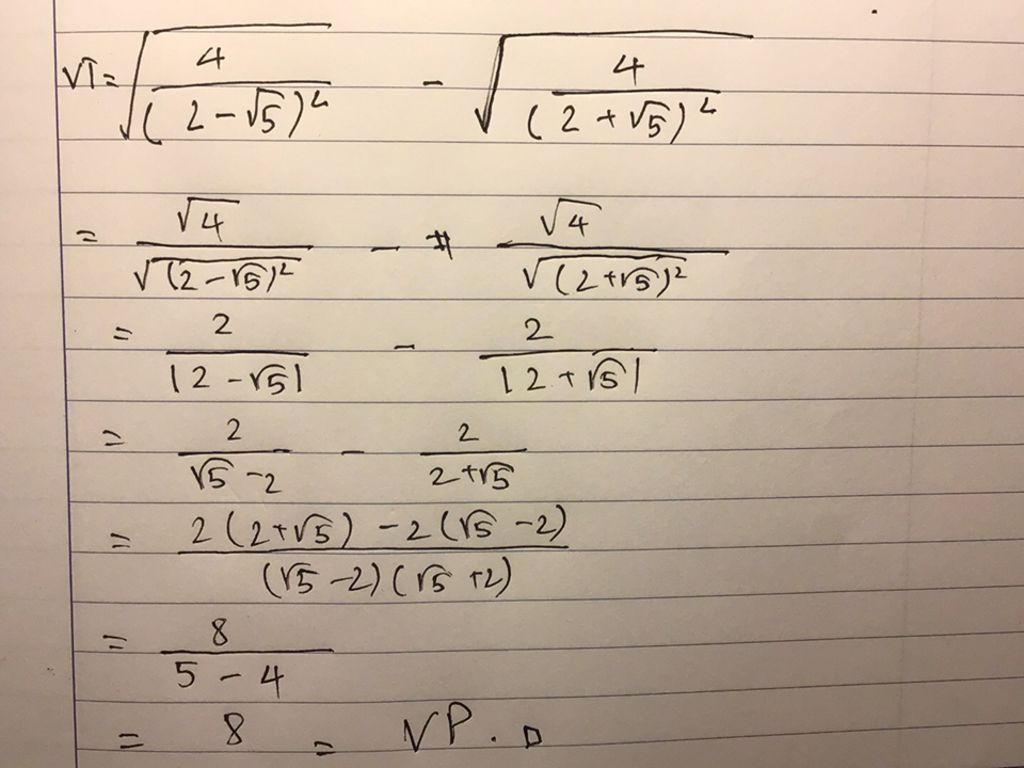 VT = √(4/(2-√5)²) - √(4/(2+√5)²)
= √4/√(2-√5)² - √4/√(2+√5)²
= 2/|2-√5| - 2/|2+√5|
= 2/(√5-2) - 2/(2+√5)
= (2(2+√5) - 2(√5-2))/((√5-2)(√5+2))
= 8/(5-4)
= 8 = VP.□